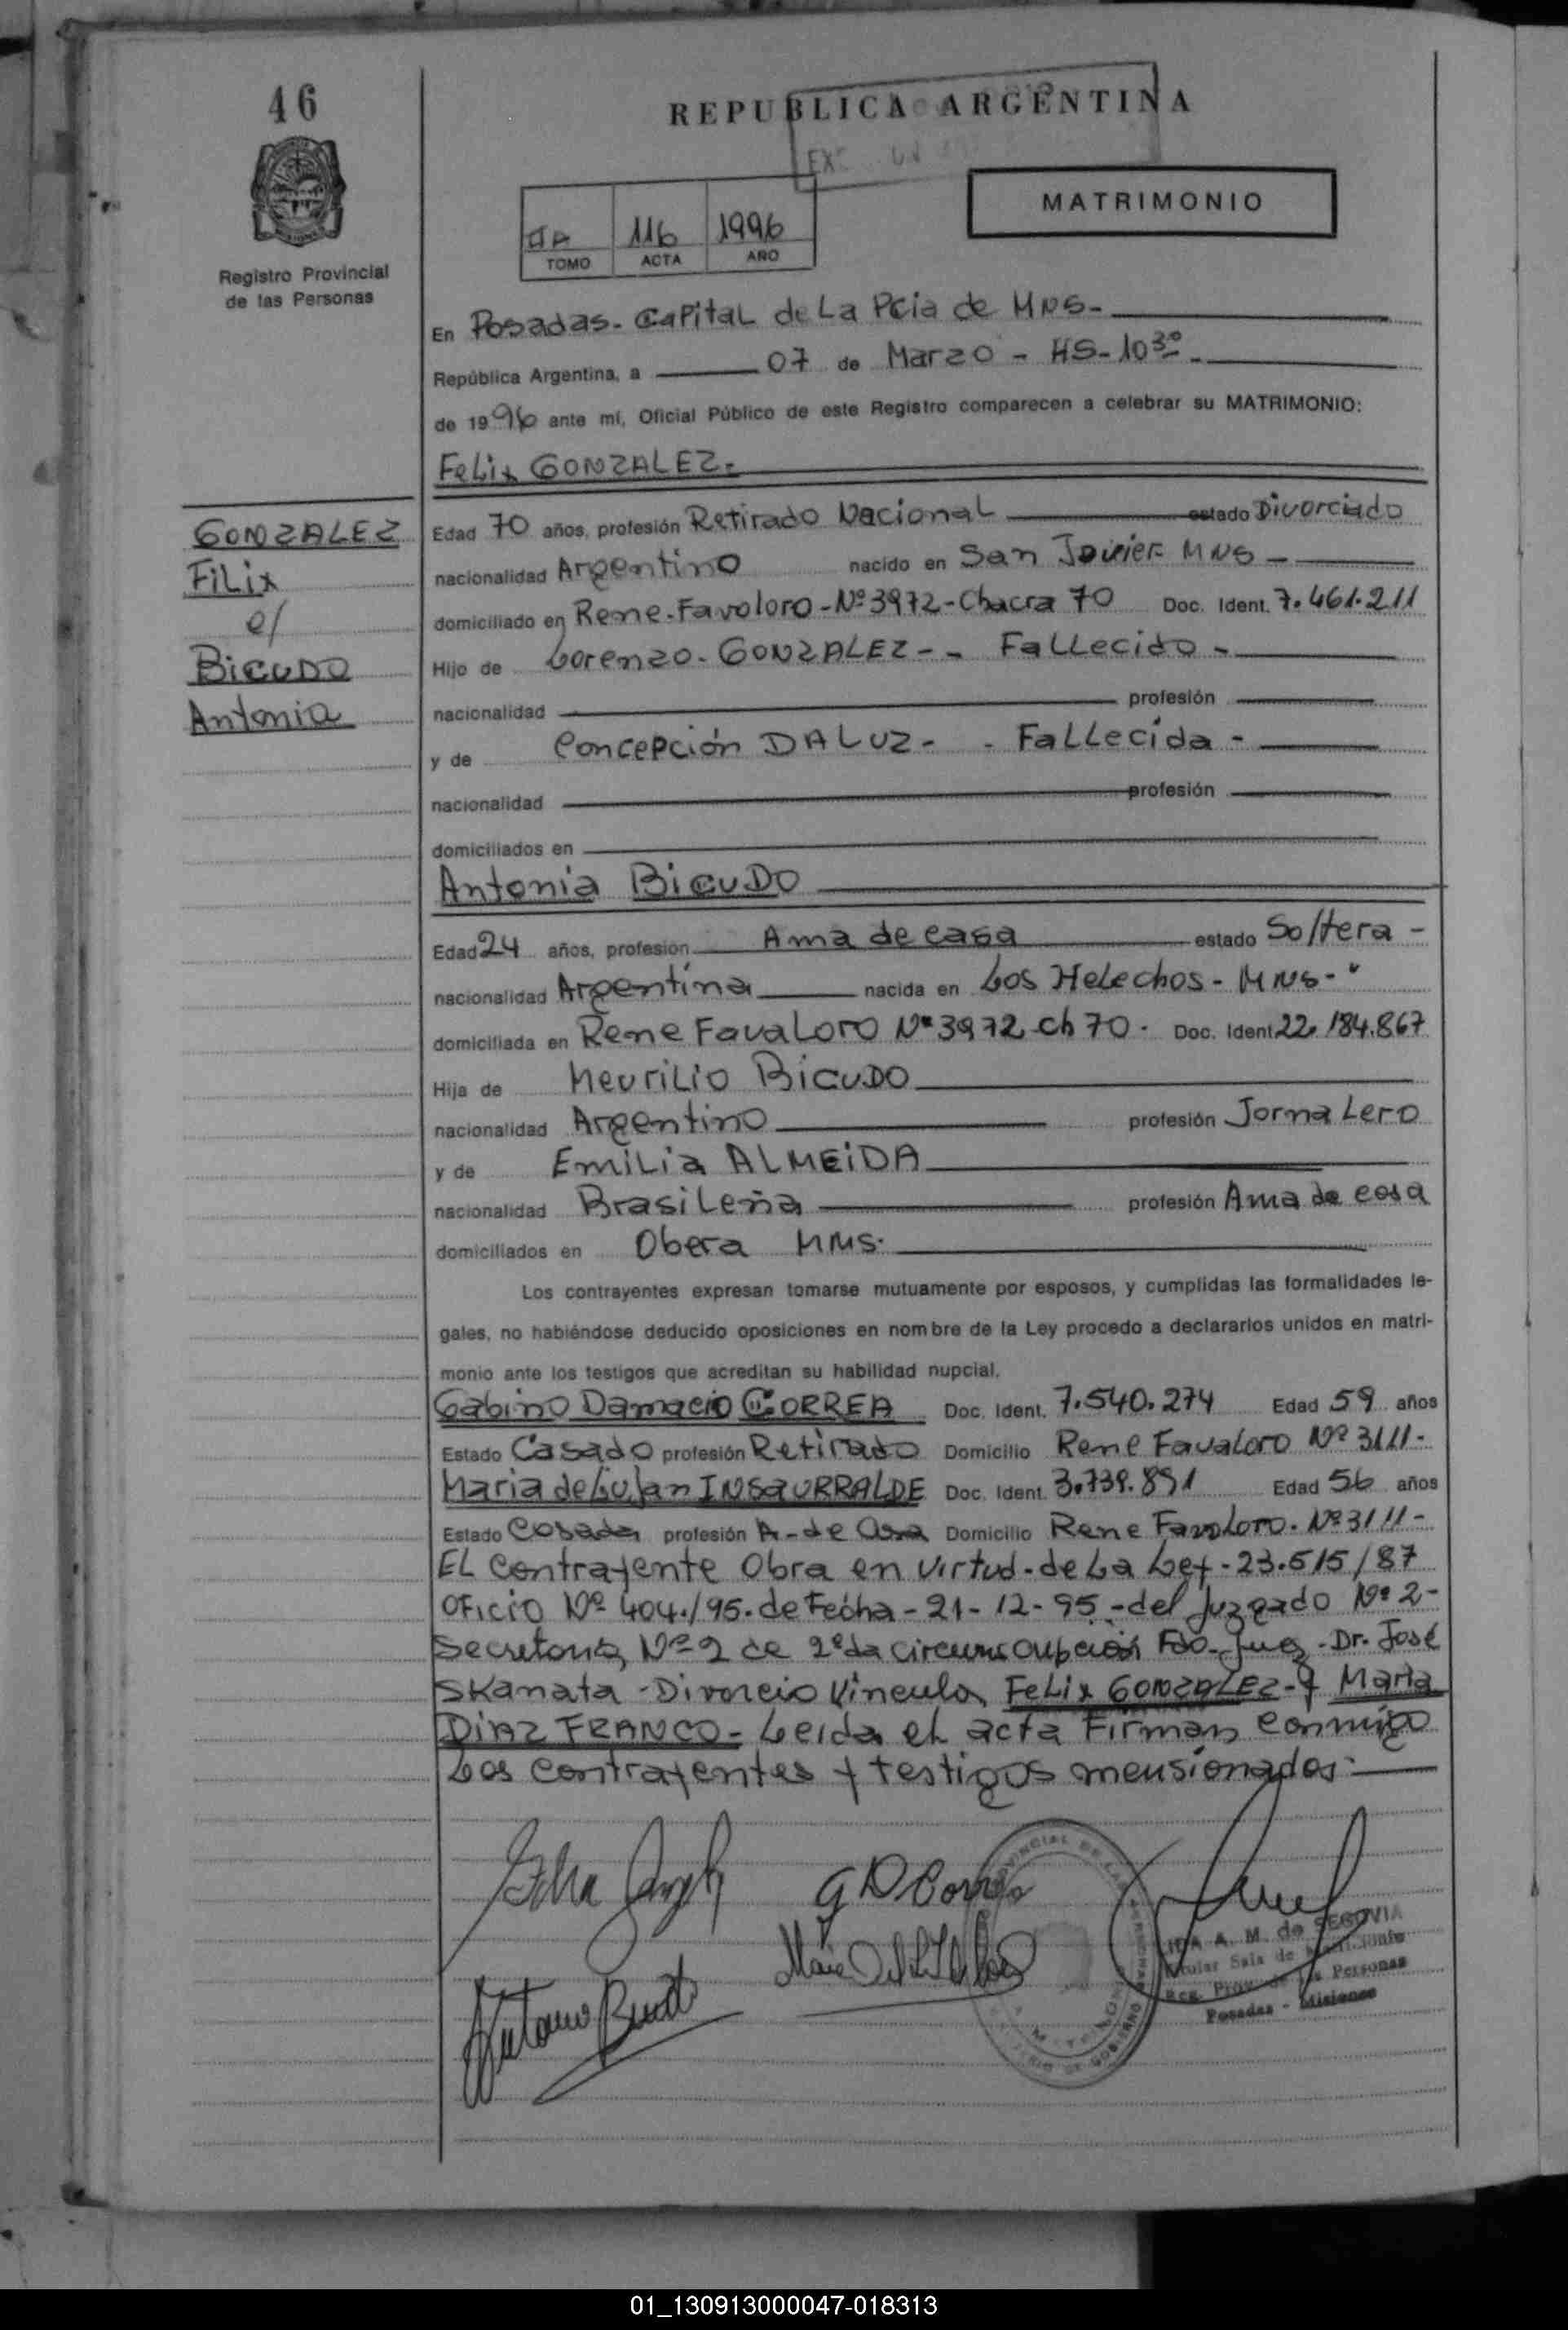 46
REPUBLICA ARGENTINA
MATRIMONIO
Registro Provincial
de las Personas
116 1996
TOMO ACTA AÑO
En Posadas- Capital de La Pcia de MNS-
República Argentina, a 07 de Marzo - HS-10³⁰-
de 1996 ante mí, Oficial Público de este Registro comparecen a celebrar su MATRIMONIO:
Felix GONZALEZ-
GONZALEZ
FiLix
c/
BicuDO
Antonia
Edad 70 años, profesión Retirado Nacional estado Divorciado
nacionalidad Argentino nacido en San Javier MNS-
domiciliado en Rene-Favoloro-Nº3972-Chacra 70 Doc. Ident. 7.461.211
Hijo de Lorenzo-GONZALEZ-- Fallecido-
nacionalidad profesión
y de Concepción DALUZ- - Fallecida-
nacionalidad profesión
domiciliados en
Antonia BicuDO
Edad 24 años, profesión Ama de casa estado Soltera-
nacionalidad Argentina nacida en Los Helechos-MNS-
domiciliada en Rene Favaloro Nº3972 Ch 70. Doc. Ident 22.184.867
Hija de Meurilio BicuDO
nacionalidad Argentino profesión Jornalero
y de Emilia ALMEiDA
nacionalidad Brasileña profesión Ama de casa
domiciliados en Obera MNS.
Los contrayentes expresan tomarse mutuamente por esposos, y cumplidas las formalidades le-
gales, no habiéndose deducido oposiciones en nombre de la Ley procedo a declararlos unidos en matri-
monio ante los testigos que acreditan su habilidad nupcial.
Gabino Damacio CORREA Doc. Ident. 7.540.274 Edad 59 años
Estado Casado profesión Retirado Domicilio Rene Favaloro Nº3111-
Maria de Lujan INSAURRALDE Doc. Ident. 3.739.891 Edad 56 años
Estado Casada profesión A-de casa Domicilio Rene Favaloro. Nº3111-
EL Contrayente Obra en virtud-de La Ley-23.515/87
Oficio Nº 404./95. de Fecha-21-12-95-del Juzgado Nº2-
Secretoria Nº2 de 2ºda circunscripción Fdo-Juez-Dr. José
Skanata-Divorcio Vincular Felix GONZALEZ-y Maria
DiAZ FRANCO-Leida el acta Firman conmigo
Los contrayentes y testigos mensionados-
G D Correa
A. M. de SEGOVIA
Titular Sala de
Reg. Prov. de las Personas
Posadas - Misiones
01_130913000047-018313